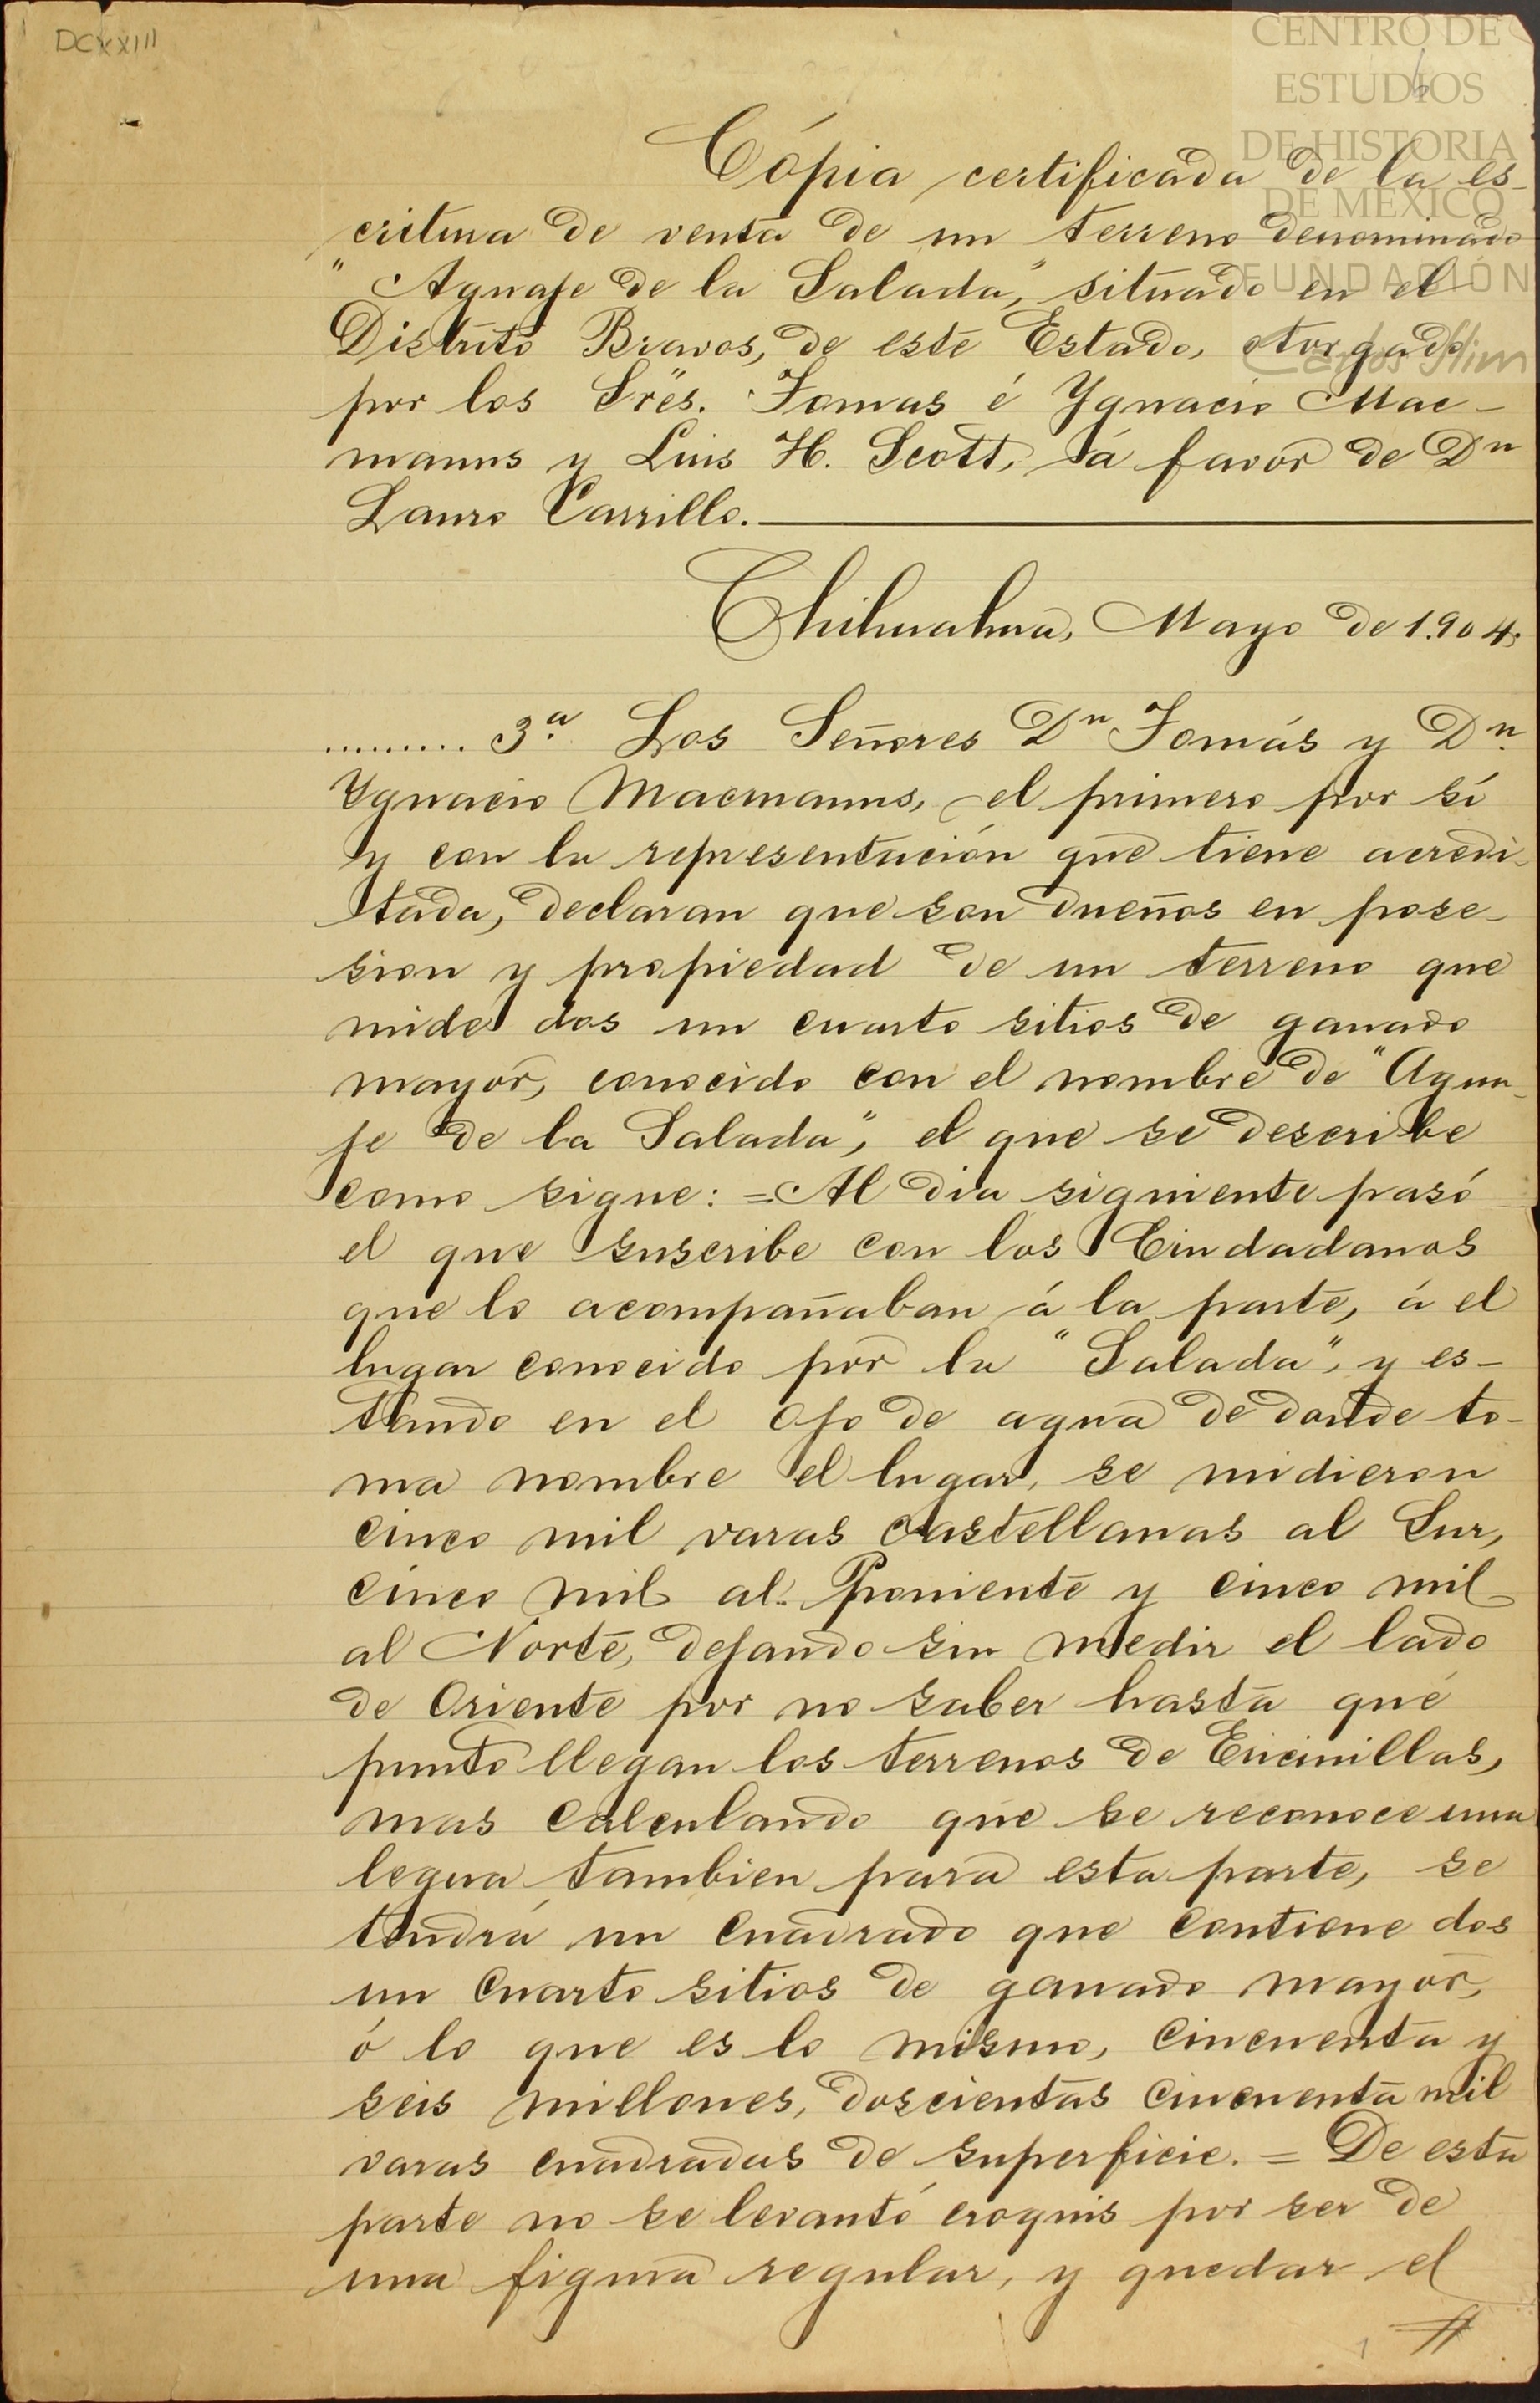 DCXXIII
CENTRO DE
ESTUDIOS
DE HISTORIA
DE MEXICO
FUNDACIÓN
Carlos Slim
Cópia certificada de la es-
critura de venta de un terreno denominado
"Aguaje de la Salada", situado en el
Distrito Bravos, de este Estado, otorgado
por los Sres. Tomas é Ygnacio Mac-
manus y Luis H. Scott, á favor de Dn
Lauro Carrillo.
Chihuahua, Mayo de 1.904.
......... 3a. Los Señores Dn Tomás y Dn.
Ygnacio Macmanus, el primero por sí
y con la representación que tiene acredi-
tada, declaran que son dueños en pose-
sion y propiedad de un terreno que
mide dos un cuarto sitios de ganado
mayor, conocido con el nombre de "Agua-
je de la Salada", el que se describe
como sigue: = Al dia siguiente pasó
el que suscribe con los Ciudadanos
que lo acompañaban á la parte, á el
lugar conocido por la "Salada", y es-
tando en el ojo de agua de donde to-
ma nombre el lugar, se midieron
cinco mil varas castellanas al Sur,
cinco mil al Poniente y cinco mil
al Norte, dejando sin medir el lado
de Oriente por no saber hasta qué
punto llegan los terrenos de Encinillas,
mas calculando que se reconoce una
legua tambien para esta parte, se
tendrá un cuadrado que contiene dos
un cuarto sitios de ganado mayor,
ó lo que es lo mismo, cincuenta y
seis millones, doscientas cincuenta mil
varas cuadradas de superficie. = De esta
parte no se levantó croquis por ser de
una figura regular, y quedar el